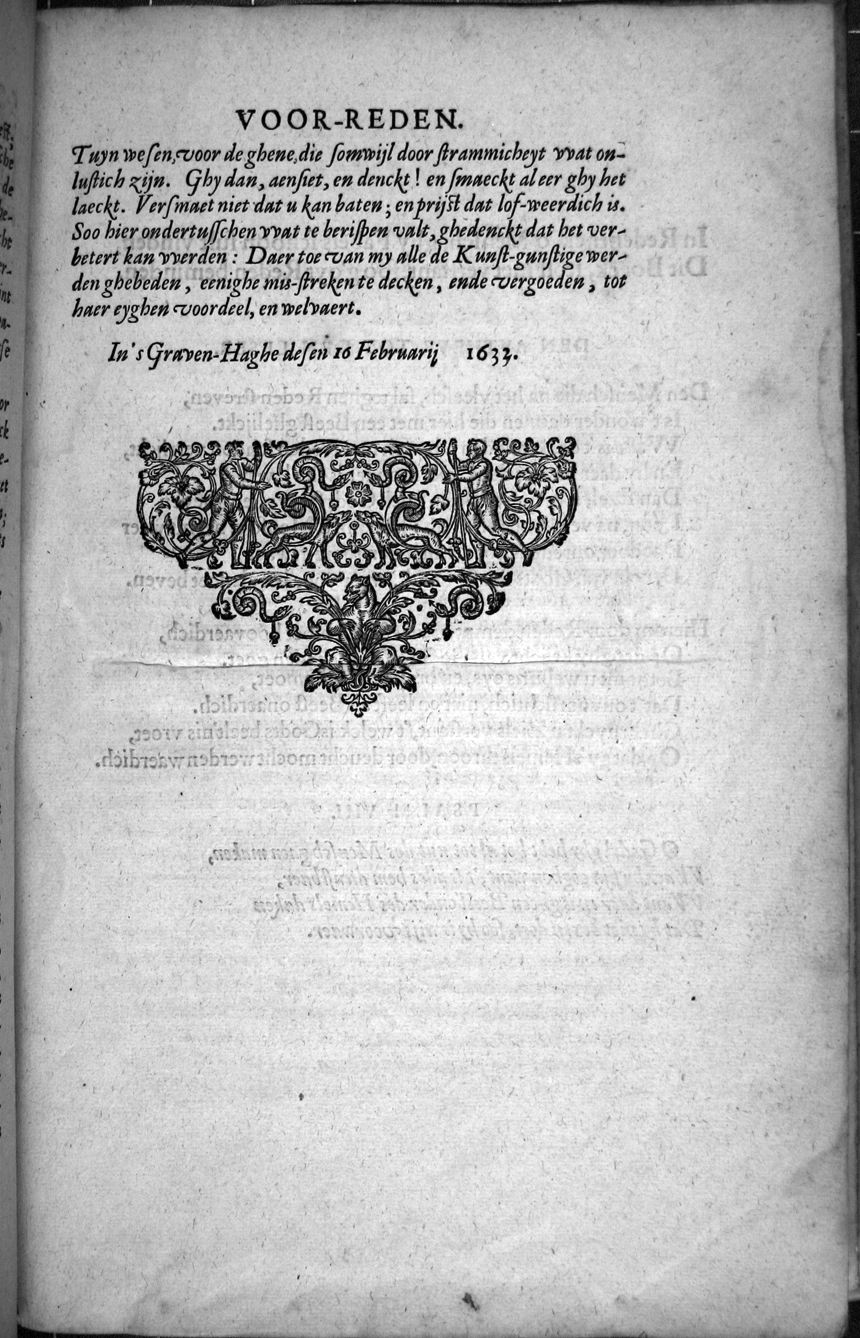 VOOR-REDEN.
Tuyn wesen, voor de ghene, die somwijl door strammicheyt wat on-
lustich zijn. Ghy dan, aensiet, en denckt! en smaeckt al eer ghy het
laeckt. Versmaet niet dat u kan baten; en prijst dat lof-weerdich is.
Soo hier ondertusschen wat te berispen valt, ghedenckt dat het ver-
betert kan werden: Daer toe van my alle de Kunst-gunstige wer-
den ghebeden, eenighe mis-streken te decken, ende vergoeden, tot
haer eyghen voordeel, en welvaert.
In's Graven-Haghe desen 16 Februarij 1633.